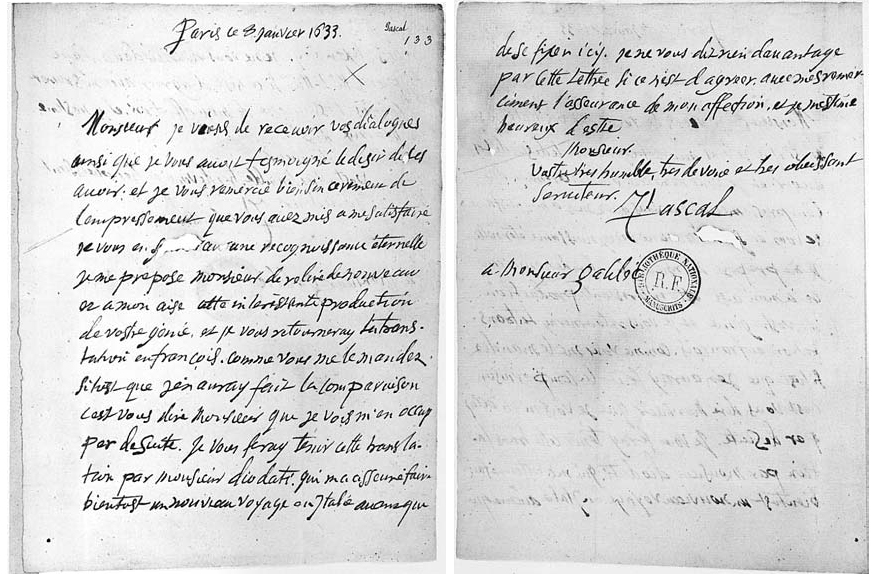 Paris ce 8 janvier 1633.
Pascal
133
Monsieur je viens de recevoir vos dialogues
ainsi que je vous avoit tesmoigné le desir de les
avoir. et je vous remercie bien sincerement de
l'empressement que vous avez mis a me satisfaire
je vous en une recognoissance éternelle
je me propose monsieur de relire de nouveau
et a mon aise cette interessente production
de vostre génie, et je vous retourneray la trans-
lation en françois. comme vous me le mandez.
sitost que j'en auray fait la comparaison
c'est vous dire Monsieur que je vois m'en occup
per de suite. Je vous feray tenir cette transla-
tion par monsieur diodati qui m'a asseuré faire
bientost un nouveau voyage en Italie avant que
de se fixer icy. je ne vous diz rien davantage
par cette lettre si ce n'est d'agreer avec mes remer-
ciment l'asseurance de mon affection. et je m'estime
heureux d'estre
Monsieur.
Vostre tres humble, tres devoué et tres obeissant
serviteur.
Pascal
a Monsieur galilée
BIBLIOTHÈQUE NATIONALE
R.F.
MANUSCRITS